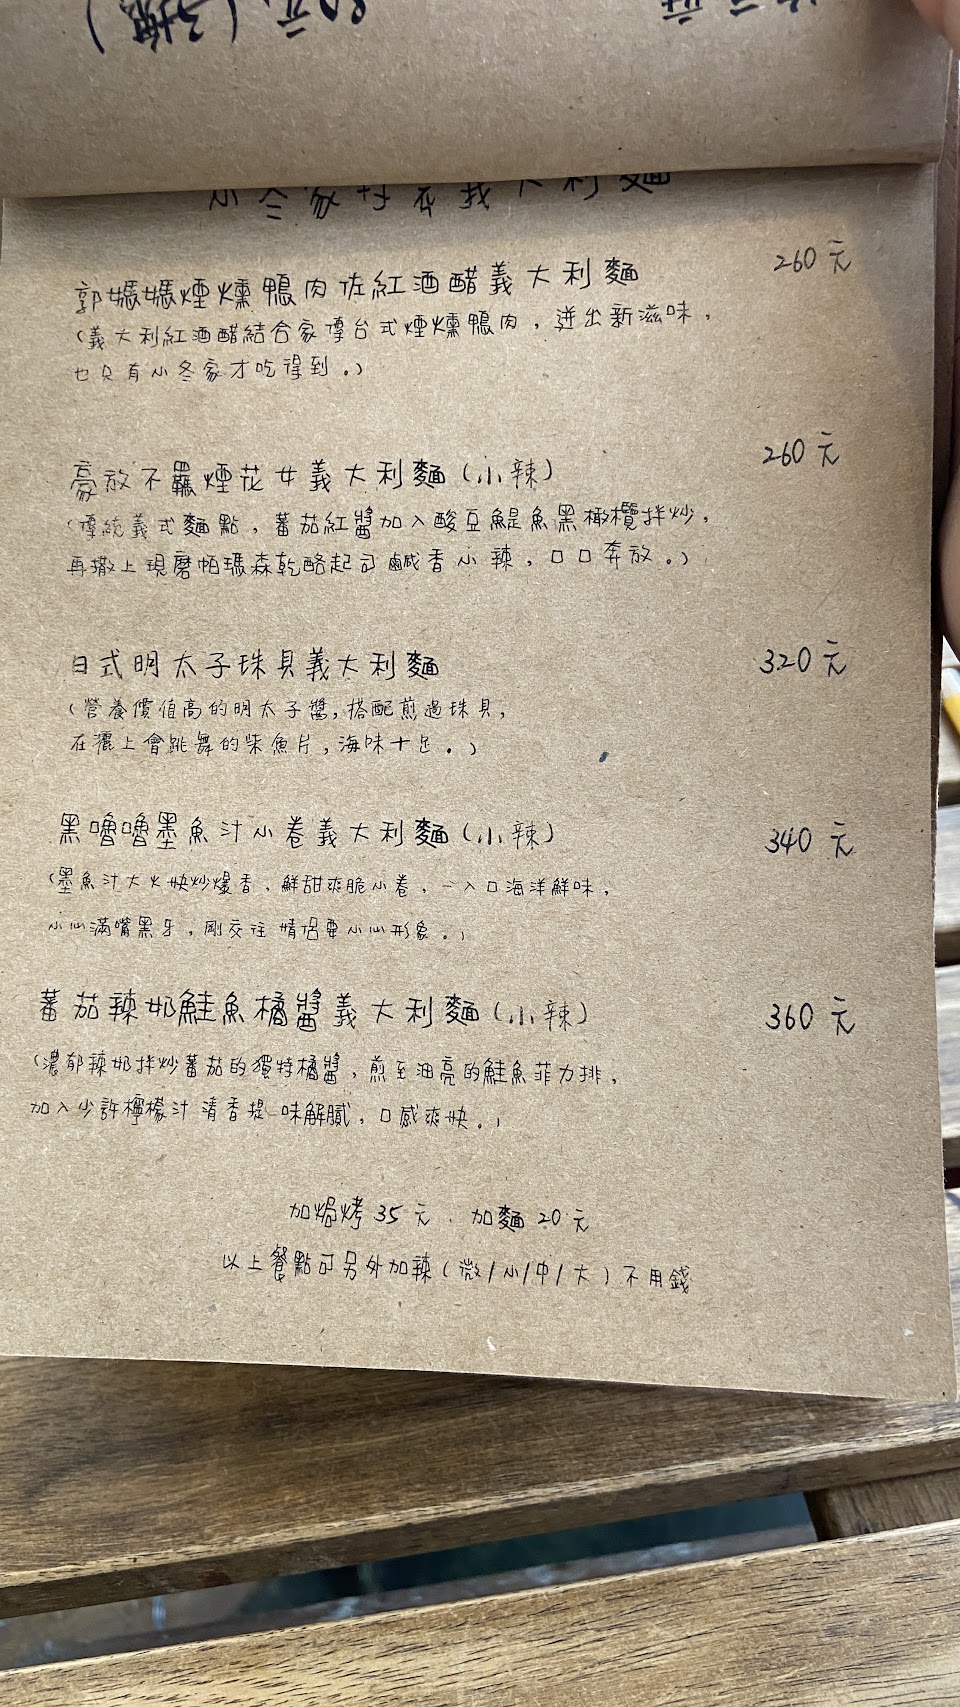 小冬家手衣義大利麵
郭媽媽煙燻鴨肉佐紅酒醋義大利麵 260元
(義大利紅酒醋結合家傳台式煙燻鴨肉，迸出新滋味，
也只有小冬家才吃得到。)
豪放不羈煙花女義大利麵(小辣) 260元
(傳統義式麵點，蕃茄紅醬加入酸豆鯷魚黑橄欖拌炒，
再撒上現磨帕瑪森乾酪起司鹹香小辣，口口奔放。)
日式明太子珠貝義大利麵 320元
(營養價值高的明太子醬，搭配煎過珠貝，
在灑上會跳舞的柴魚片，海味十足。)
黑嚕嚕墨魚汁小卷義大利麵(小辣) 340元
(墨魚汁大火快炒爆香，鮮甜爽脆小卷，一入口海洋鮮味，
小心滿嘴黑牙，剛交往情侶要小心形象。)
蕃茄辣奶鮭魚橘醬義大利麵(小辣) 360元
(濃郁辣奶拌炒蕃茄的獨特橘醬，煎至油亮的鮭魚菲力排，
加入少許檸檬汁清香提味解膩，口感爽快。)
加焗烤35元．加麵20元
以上餐點可另外加辣(微/小/中/大)不用錢